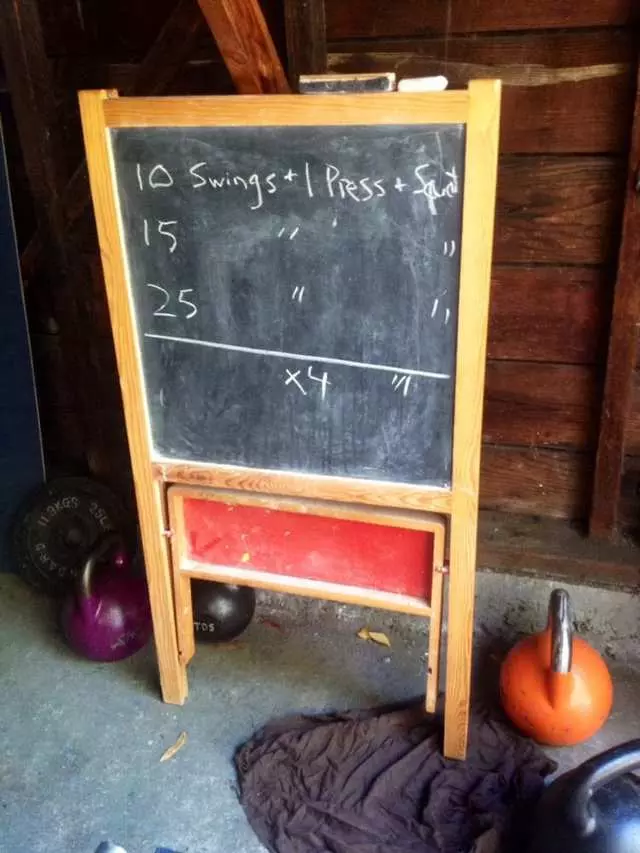 10 Swings + 1 Press + Squat
15 " "
25 " "
x4 "
11.3KGS 25LB
TOS